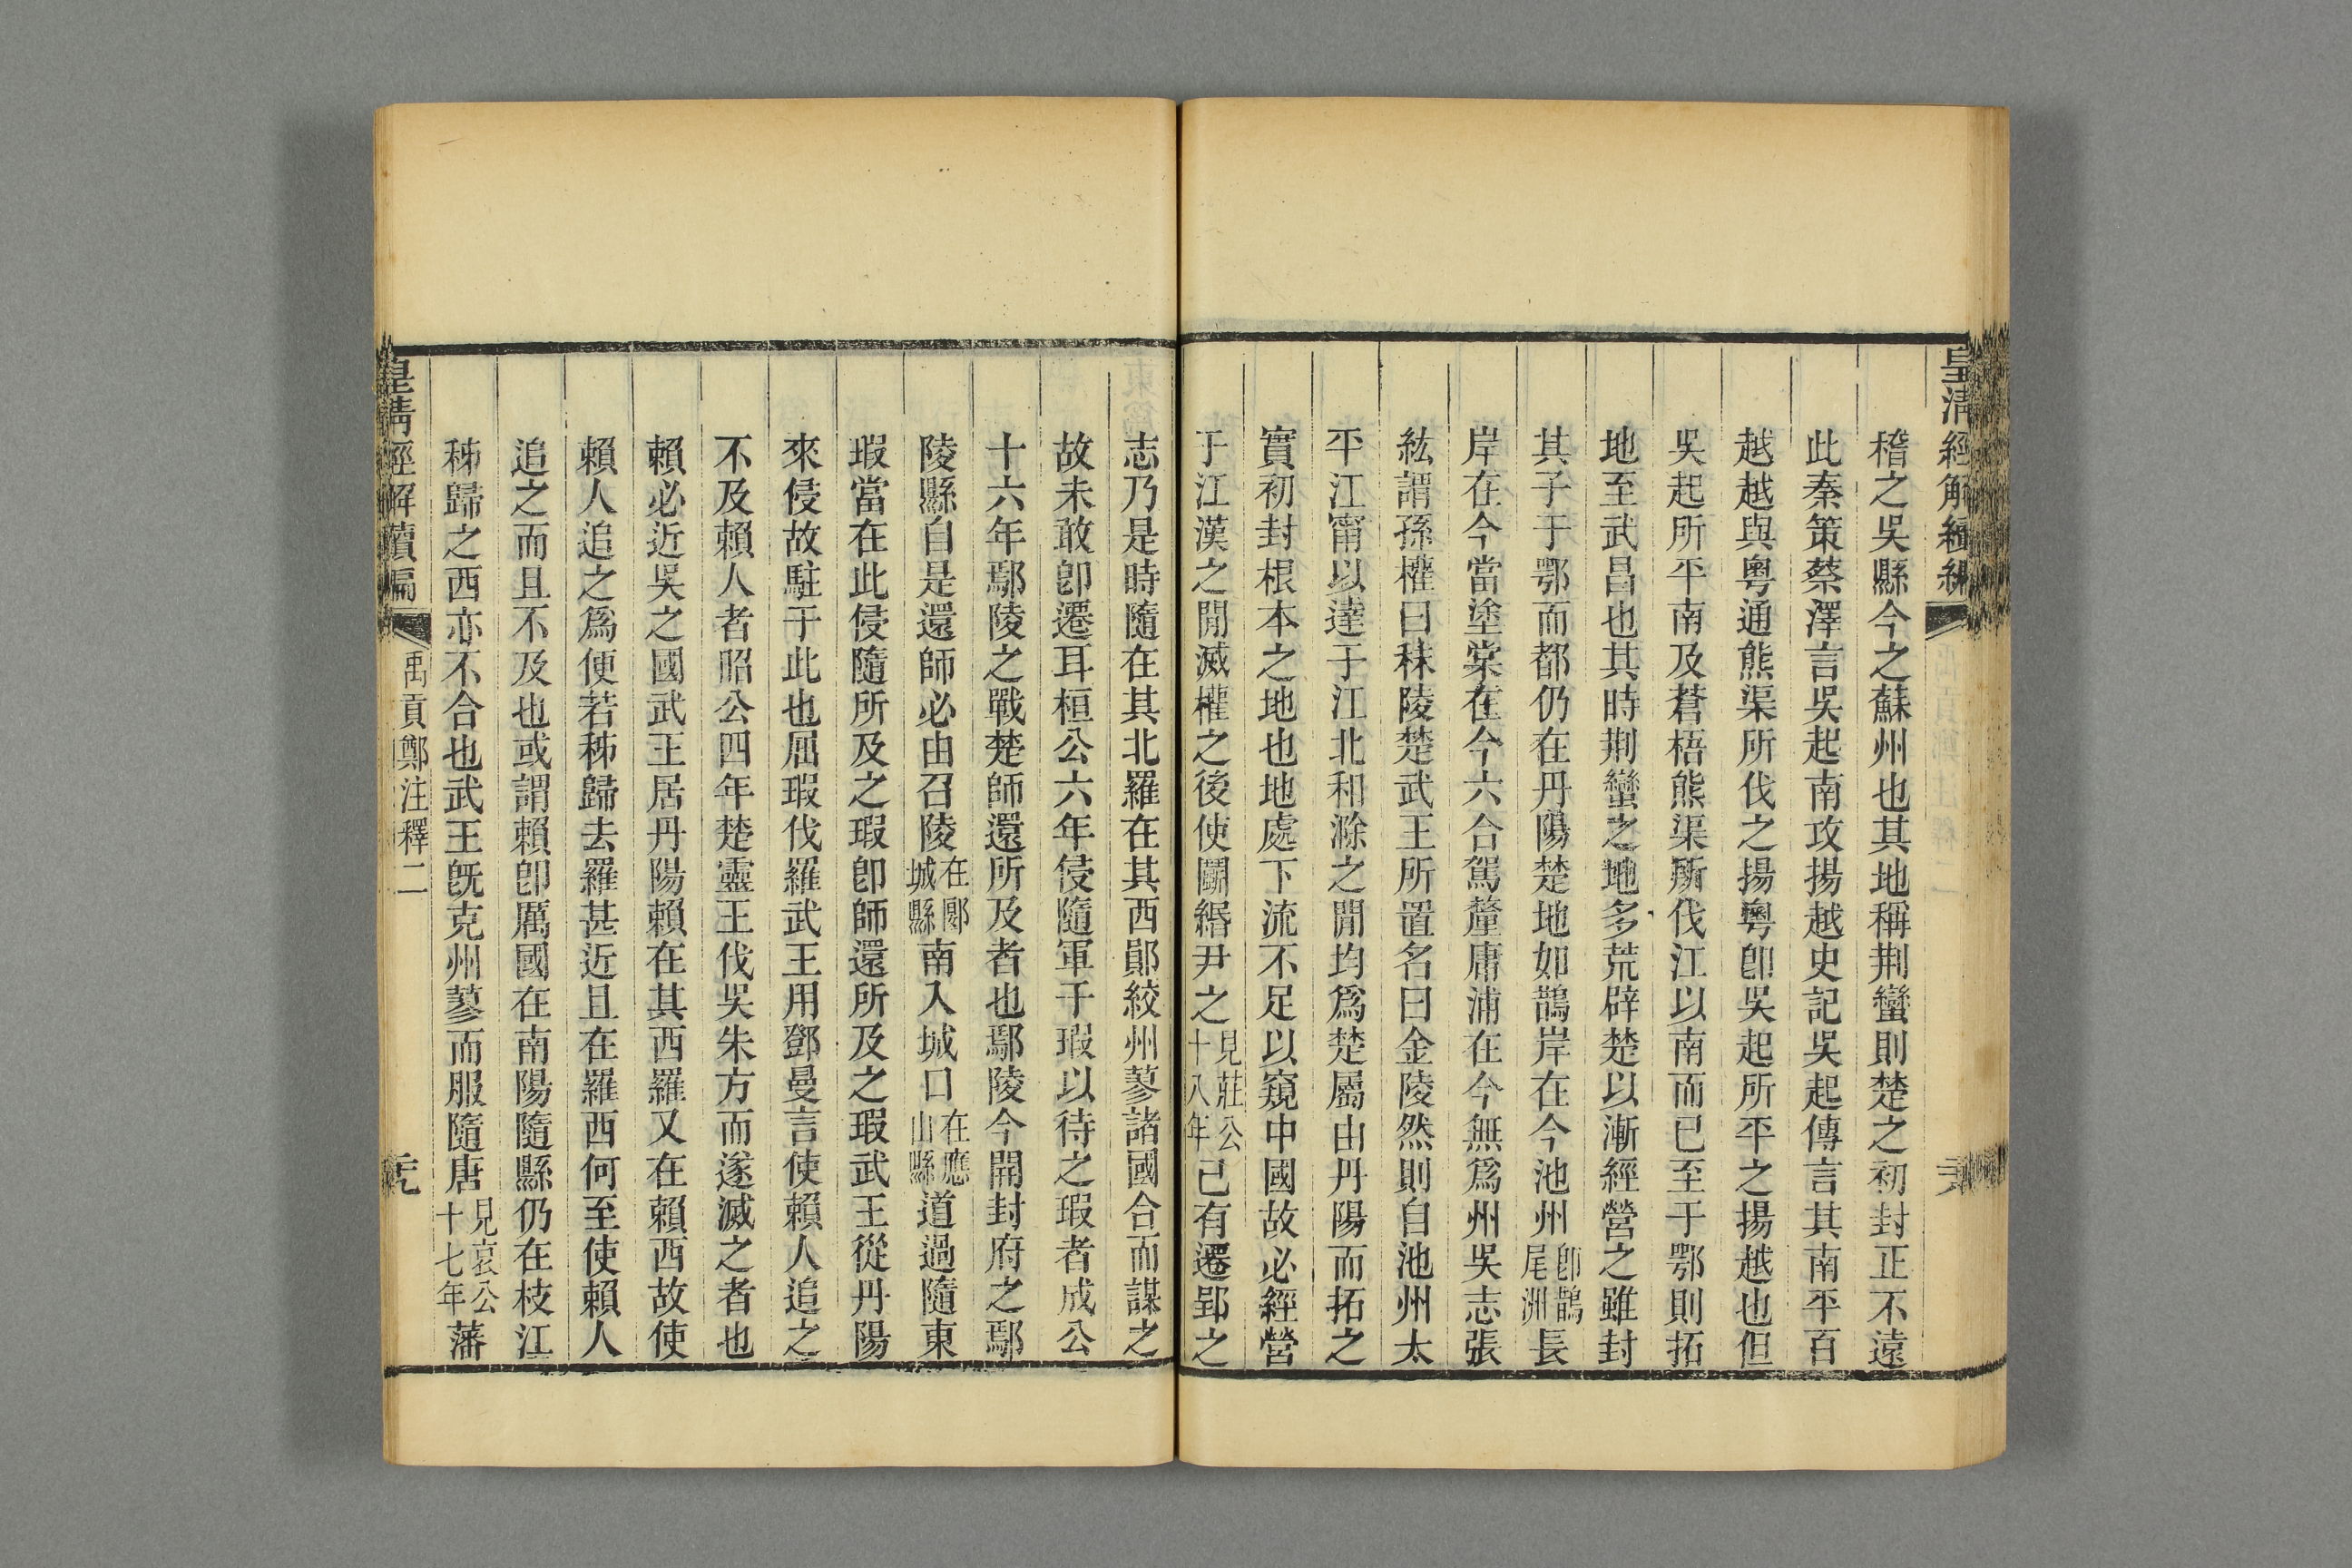 皇清經解續編
稽之吳縣今之蘇州也其地稱荆蠻則楚之初封正不遠
此秦策蔡澤言吳起南攻揚越史記吳起傳言其南平百
越越與粵通熊渠所伐之揚粵卽吳起所平之揚越也但
吳起所平南及蒼梧熊渠所伐江以南而已至于鄂則拓
地至武昌也其時荆蠻之地多荒辟楚以漸經營之雖封
其子于鄂而都仍在丹陽楚地如鵲岸在今池州卽鵲尾洲長
岸在今當塗棠在今六合駕釐庸浦在今無爲州吳志張
紘謂孫權曰秣陵楚武王所置名曰金陵然則自池州太
平江甯以達于江北和滁之閒均爲楚屬由丹陽而拓之
實初封根本之地也地處下流不足以窺中國故必經營
于江漢之閒滅權之後使鬬緡尹之見莊公十八年已有遷郢之
志乃是時隨在其北羅在其西鄖絞州蓼諸國合而謀之
故未敢卽遷耳桓公六年侵隨軍于瑕以待之瑕者成公
十六年鄢陵之戰楚師還所及者也鄢陵今開封府之鄢
陵縣自是還師必由召陵在郾城縣南入城口在應山縣道過隨東
瑕當在此侵隨所及之瑕卽師還所及之瑕武王從丹陽
來侵故駐于此也屈瑕伐羅武王用鄧曼言使賴人追之
不及賴人者昭公四年楚靈王伐吳朱方而遂滅之者也
賴必近吳之國武王居丹陽賴在其西羅又在賴西故使
賴人追之爲便若秭歸去羅甚近且在羅西何至使賴人
追之而且不及也或謂賴卽厲國在南陽隨縣仍在枝江
秭歸之西亦不合也武王旣克州蓼而服隨唐見哀公十七年藩
皇清經解續編 禹貢鄭注釋二